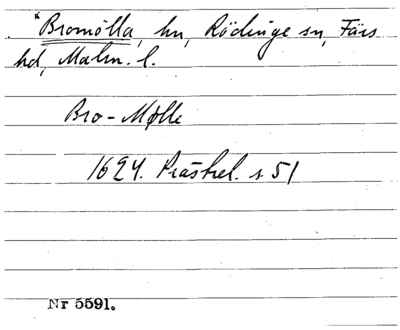 *Bromölla, hn, Rödinge sn, Färs
hd, Malm. l.
Bro-Mølle
1624. Prästrel. s. 51
Nr 5591.